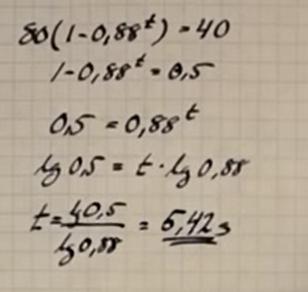 80(1-0,88^t) = 40
1-0,88^t = 0,5
0,5 = 0,88^t
lg 0,5 = t · lg 0,88
t = lg 0,5 / lg 0,88 = 5,42 s